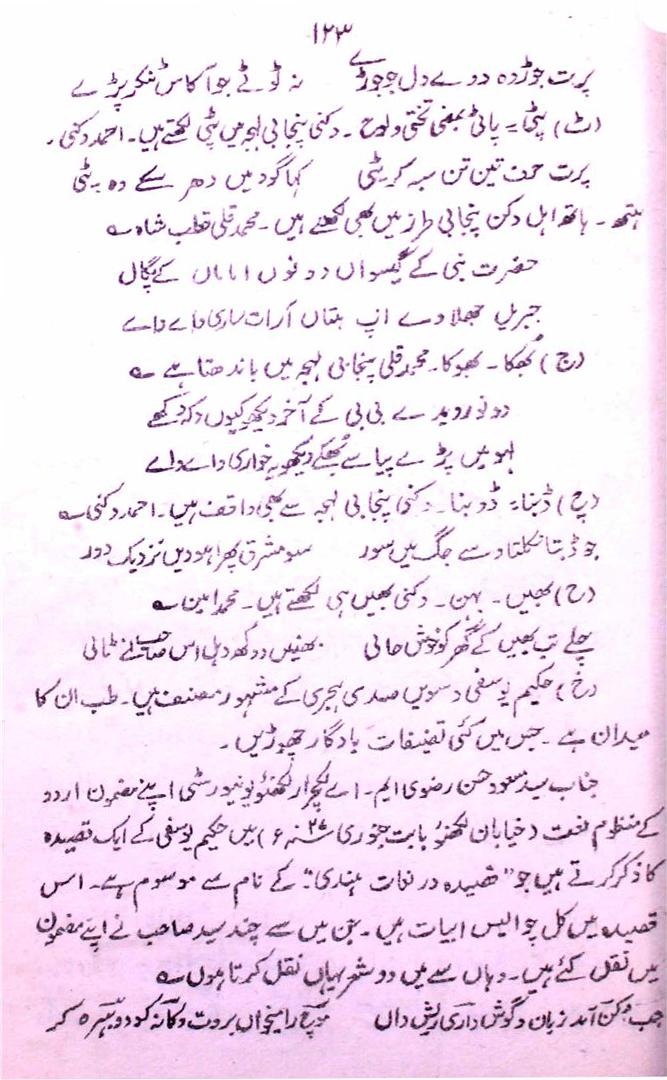 ۱۲۳
پرت جوڑدہ دوے دل جو جوڑے نہ ٹوٹے جو آکاس ٹنکر پڑے
(ٹ) پٹی = پاٹی بمعنی تختی و لوح۔ دکنی پنجابی لہجہ میں پٹی لکھتے ہیں۔ احمد دکنی۔
پرت حرف تین تن سبہ کر بٹی کہا گود میں دھر سکے دہ پٹی
ہتھ۔ ہاتھ اہل دکن پنجابی طرز میں بھی لکھتے ہیں۔ محمد قلی قطب شاہ ؎
حضرت نبی کے گیسواں دونوں اماماں کے
جبریل جھلادے اپ ہتاں آرات ساری واے واے
(ج) بھُکا۔ بھوکا۔ محمد قلی پنجابی لہجہ میں باندھتا ہے ؎
دو نورِ دیدے بی بی کے آخر دیکھو کیوں دکھ دیکھے
لہو میں پڑے پیاسے بھُکے دیکھو یہ خواری واے واے
(چ) ڈبنا = ڈوبنا۔ دکنی پنجابی لہجہ سے بھی واقف ہیں۔ احمد دکنی ؎
جو ڈبتا نکلتا دسے جگ میں سور سو مشرق پھرا ہودیں نزدیک دور
(ح) بھیں۔ بہن۔ دکنی بھیں ہی لکھتے ہیں۔ محمد امین ؎
چلے تب بھیں کے گھر کو خوش حالی بھنیں دوکھ دہل اس صاحب نے ٹالی
(خ) حکیم یوسفی دسویں صدی ہجری کے مشہور مصنف ہیں۔ طب ان کا
میدان ہے۔ جس میں کئی تصنیفات یادگار چھوڑیں۔
جناب سید مسعود حسن رضوی ایم۔ اے لکچرار لکھنؤ یونیورسٹی اپنے مضمون اردو
کے منظوم لغت (خیابان لکھنؤ بابت جنوری سنہ ء) میں حکیم یوسفی کے ایک قصیدہ
کا ذکر کرتے ہیں جو "قصیدہ در لغات ہندی" کے نام سے موسوم ہے۔ اس
قصیدہ میں کل چوالیس ابیات ہیں۔ جن میں سے چند سید صاحب نے اپنے مضمون
میں نقل کئے ہیں۔ وہاں سے میں دو شعر یہاں نقل کرتا ہوں ؎
جب بوکن آمد زبان و گوش داری ریش داں موچ را میخواں بروت و کانہ کو دو بہیرہ کر